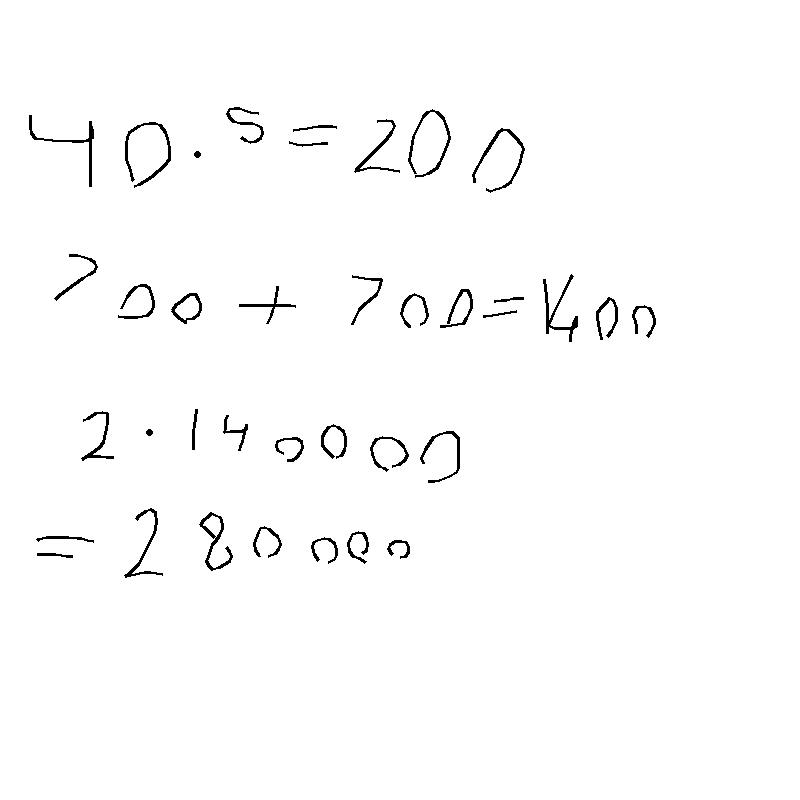 40 · 5 = 200
700 + 700 = 1400
2 · 140000
= 280000